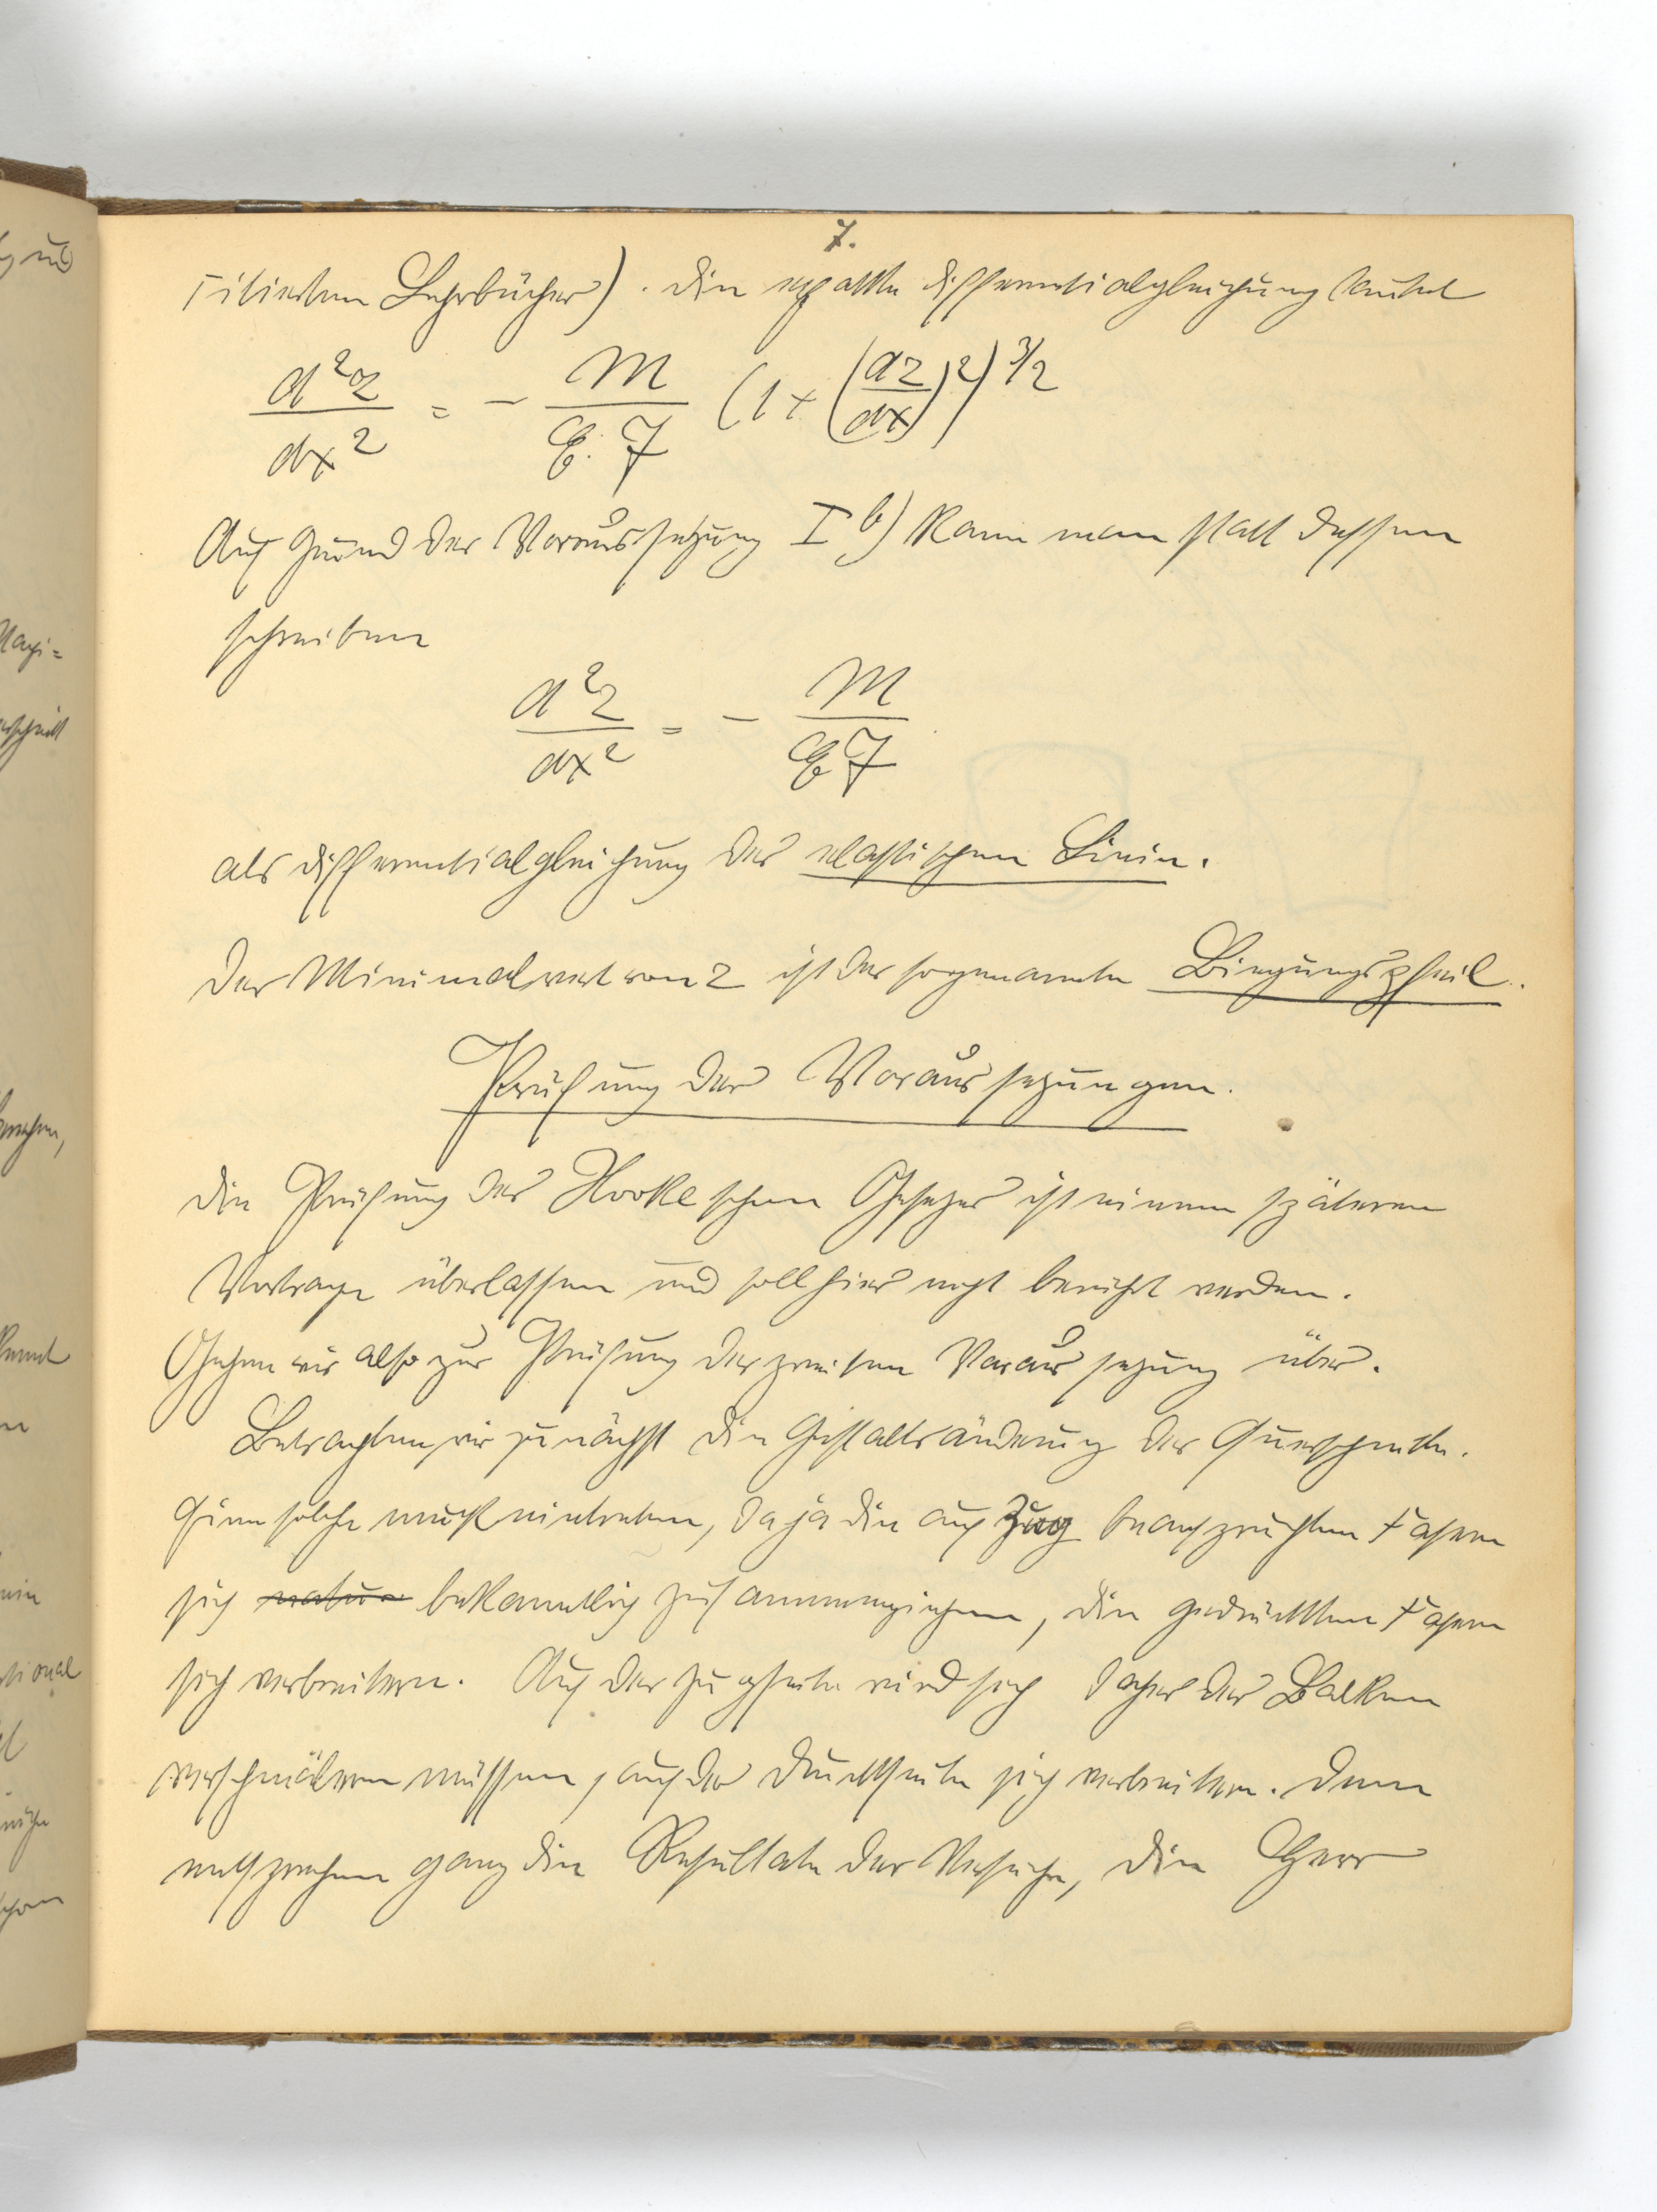 7.
zitierten Lehrbücher). Die exakte Differentialgleichung lautet
d²z/dx² = - M/(E. J) (1+(dz/dx)²)^3/2
Auf Grund der Voraussetzung I b) kann man statt dessen
schreiben
d²z/dx² = - M/(E J)
als Differentialgleichung der elastischen Linie.
Der Minimalwert von z ist der sogenannte Biegungspfeil.
Prüfung der Voraussetzungen.
Die Prüfung des Hooke'schen Gesetzes ist einem späteren
Vortrage überlassen und soll hier nicht berührt werden.
Gehen wir also zur Prüfung der zweiten Voraussetzung über.
Betrachten wir zunächst die Gestaltsänderung der Querschnitte.
Eine solche muß eintreten, da ja die auf Zug beanspruchten Fasern
sich natur bekanntlich zusammenziehen, die gedrückten Fasern
sich verbreitern. Auf der Zugseite wird sich daher der Balken
verschmälern müssen, auf der Druckseite sich verbreitern. Dem
entsprechen ganz die Resultate der Versuche, die Herr